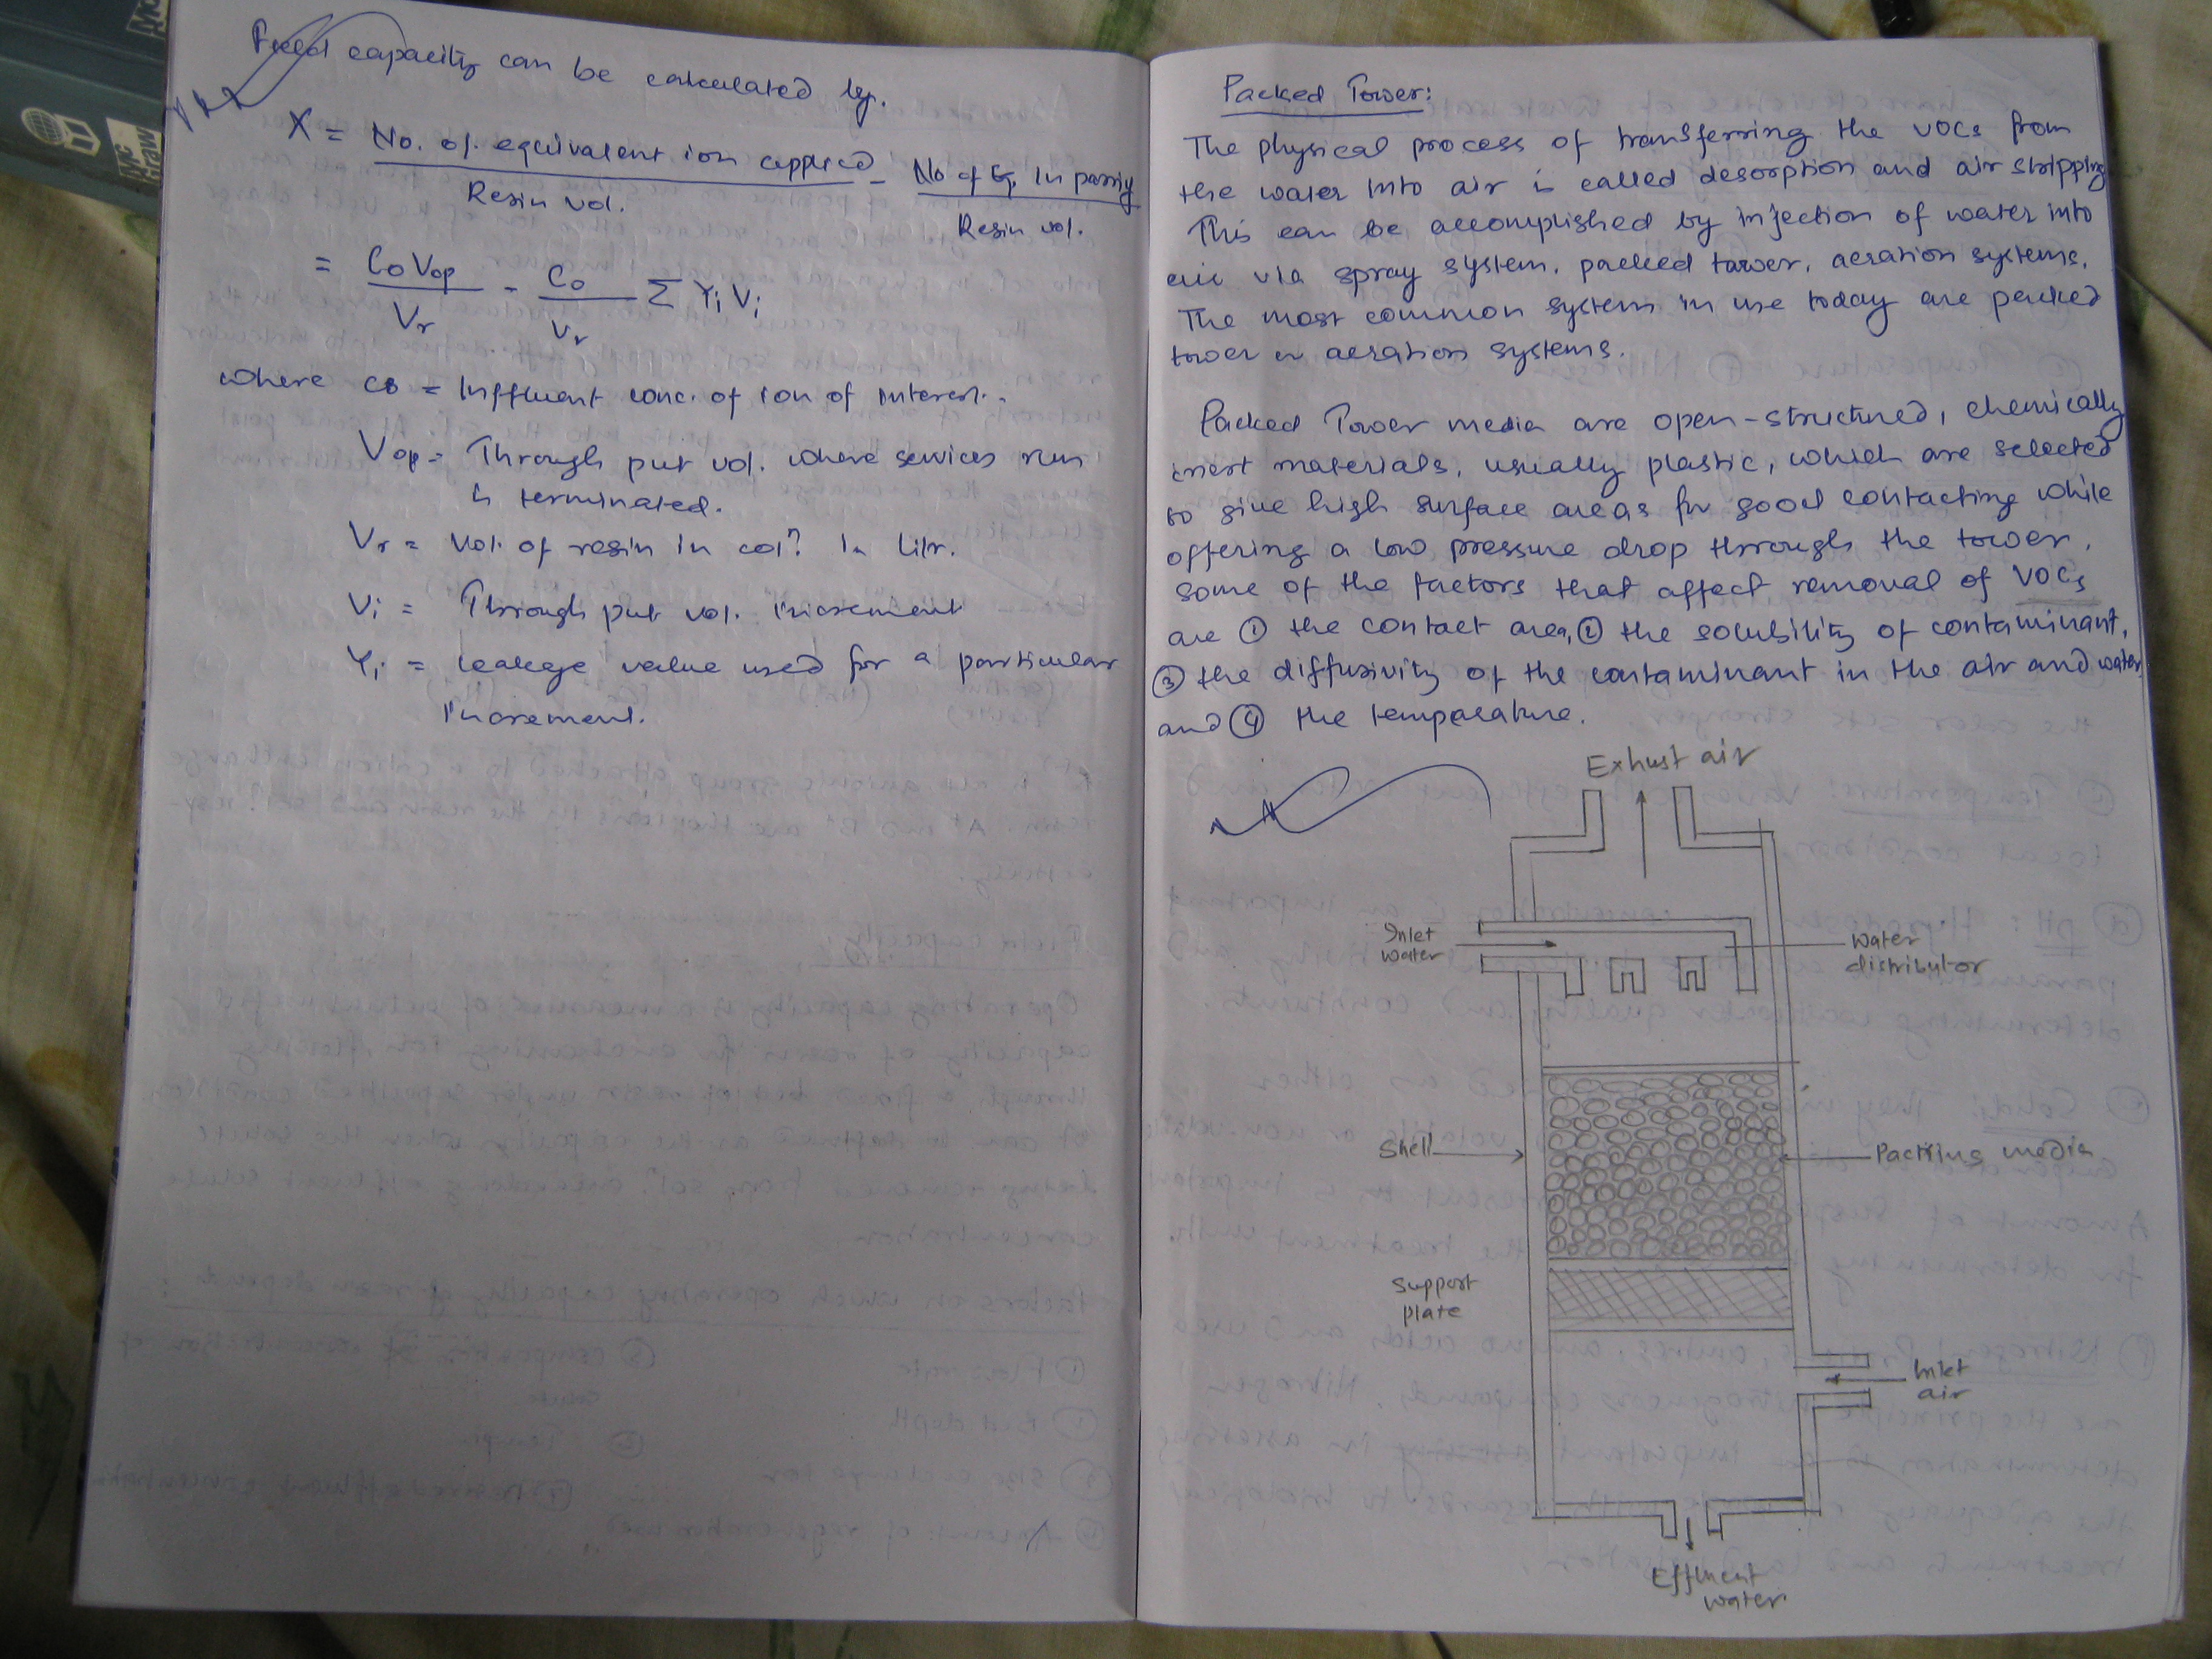 Field capacity can be calculated by.
X = No. of. equivalent ion applied / Resin vol. - No of Eq. In passing / Resin vol.
= C0 Vop / Vr - C0 / Vr Σ Yi Vi
where C0 = Inffluent conc. of ion of interest.
Vop = Through put vol. where services run
is terminated.
Vr = Vol. of resin in coln. in litr.
Vi = Through put vol. increment
Yi = leakage value used for a particular
increment.
Packed Tower:
The physical process of transferring the VOCs from
the water into air is called desorption and air stripping
This can be accomplished by injection of water into
air via spray system, packed tower, aeration systems.
The most common systems in use today are packed
tower or aeration systems.
Packed Tower media are open-structured, chemically
inert materials, usually plastic, which are selected
to give high surface areas for good contacting while
offering a low pressure drop through the tower.
some of the factors that affect removal of VOCs
are ① the contact area, ② the solubility of contaminant,
③ the diffusivity of the contaminant in the air and water
and ④ the temperature.
Exhust air
Inlet
water
Water
distributor
Shell
Packing media
Support
plate
Inlet
air
Effluent
water